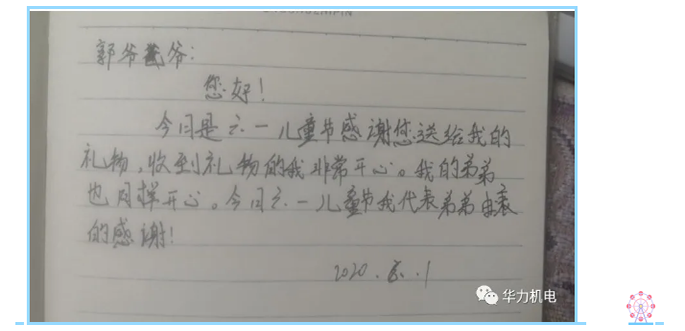 郭爷爷:
您好!
今日是六一儿童节感谢您送给我的
礼物,收到礼物的我非常开心。我的弟弟
也同样开心。今日六.一儿童节我代表弟弟由衷
的感谢!
2020.6.1
华力机电